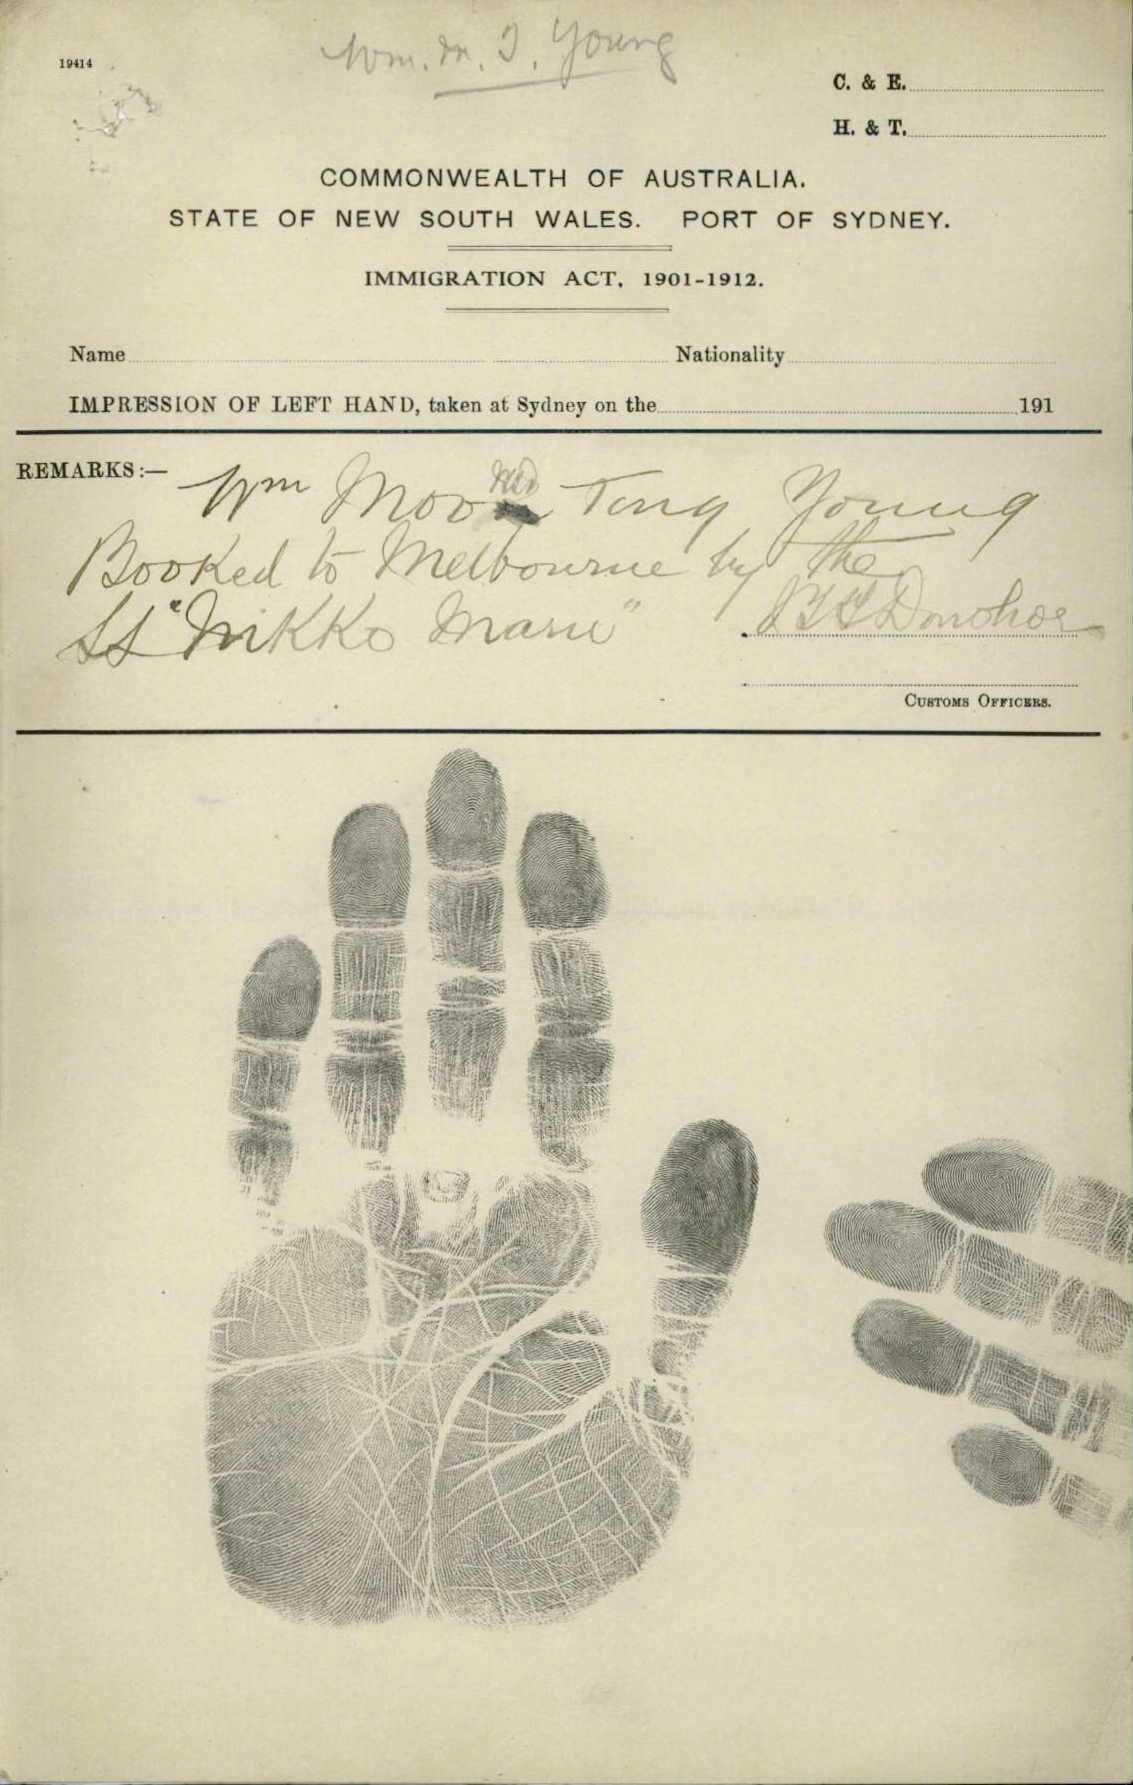 19414
Wm. M. T. Young
C. & E.
H. & T.
COMMONWEALTH OF AUSTRALIA.
STATE OF NEW SOUTH WALES. PORT OF SYDNEY.
IMMIGRATION ACT, 1901-1912.
Name Nationality
IMPRESSION OF LEFT HAND, taken at Sydney on the 191
REMARKS:— Wm Moo Tong Young
Booked to Melbourne by the
SS "Nikko Maru" Donohoe
CUSTOMS OFFICERS.